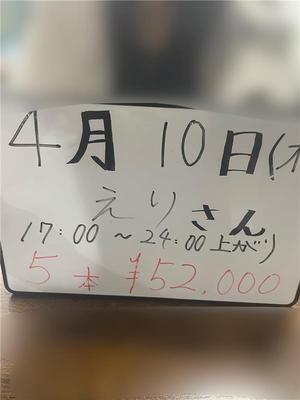 4月 10日(木
えりさん
17:00 ~ 24:00 上がり
5本 ¥52.000